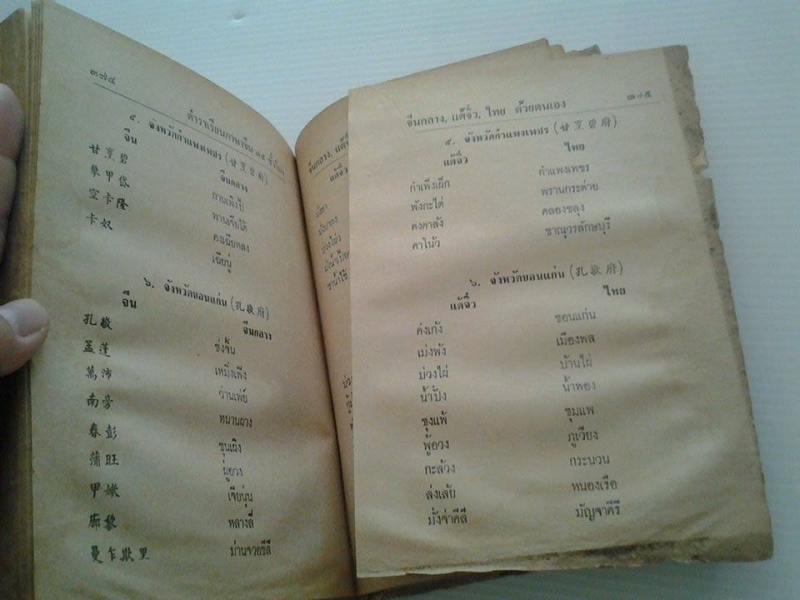 ๓๗๔
ตำราเรียนภาษาจีน
๕. จังหวัดกำแพงเพชร (甘烹碧府)
จีน จีนกลาง
甘烹碧 กานเพิงปี
攀甲岱
空卡隆
卡奴
๖. จังหวัดขอนแก่น (孔敬府)
จีน จีนกลาง
孔敬 ข่งจิ้น
孟蓬 เหมิ่งเพิง
萬沛 ว่านเพ่ย์
南旁 หนานผาง
春彭 ชุนเผิง
蒲旺 ผู่อวง
甲嫩 เจียนุ่น
廊黎 หลางลี่
曼乍歎里 ม่านจวอขีลี
จีนกลาง, แต้จิ๋ว
แต้จิ๋ว
จีนกลาง, แต้จิ๋ว, ไทย ด้วยตนเอง ๓๗๕
๕. จังหวัดกำแพงเพชร (甘烹碧府)
แต้จิ๋ว ไทย
กำเพ็งเผ็ก กำแพงเพชร
พังกะไต๋ พรานกระต่าย
คงคาลัง คลองขลุง
คาโนัว ขาณุวรลักษบุรี
๖. จังหวัดขอนแก่น (孔敬府)
แต้จิ๋ว ไทย
ค่งเก้ง ขอนแก่น
เม่งพัง เมืองพล
บ่วงไผ่ บ้านไผ่
น้ำปัง น้ำพอง
ชุงแพ้ ชุมแพ
พู้อวง ภูเวียง
กะล้วง กระนวน
ล่งเล้ย หนองเรือ
มั้งจ่าคีลี มัญจาคีรี